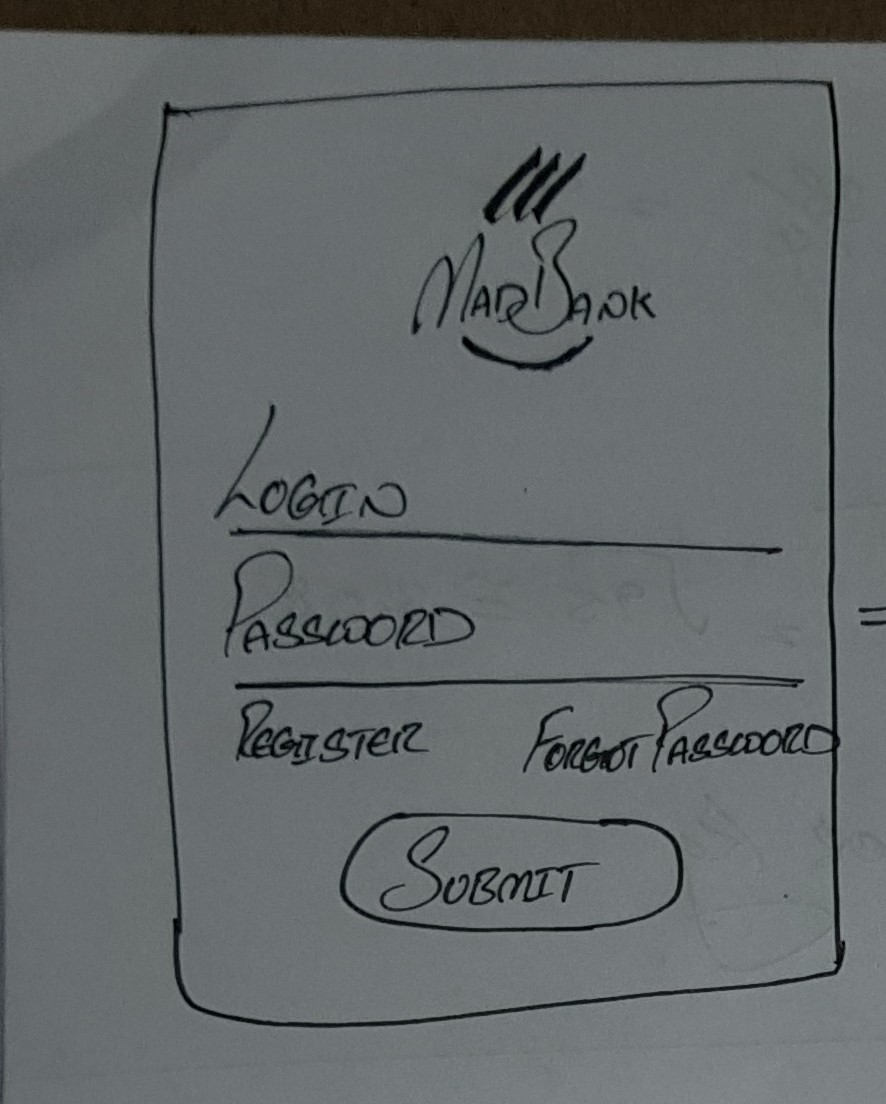 MarBank
Login
Password
Register Forgot Password
Submit
=